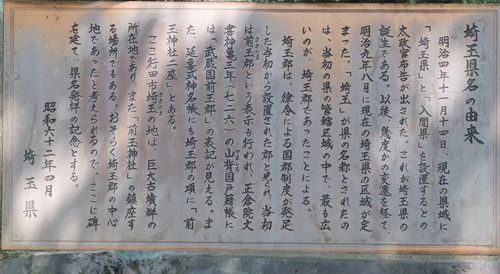 埼玉県名の由来
明治四年十一月十四日、現在の県域に
「埼玉県」と「入間県」を設置するとの
太政官布告が出された。これが埼玉県の
誕生である。以後、幾度かの変遷を経て、
明治九年八月に現在の埼玉県の区域が定
まった。「埼玉」が県の名称とされたの
は、当初の県の管轄区域の中で、最も広
いのが、埼玉郡であったことによる。
埼玉郡は、律令による国郡制度が発足
した当初から設置された郡と見られ、当初
は前玉郡という表示も行われ、正倉院文
書神亀三年（七二六）の山背国戸籍帳に
は「武蔵国前玉郡」の表記が見える。ま
た、延喜式神名帳にも埼玉郡の項に、「前
玉神社二座」とある。
ここ行田市埼玉の地は、巨大古墳群の
所在地であり、また「前玉神社」の鎮座す
る場所でもある。おそらく埼玉郡の中心
地であったと考えられるので、ここに碑
を建て、県名発祥の記念とする。
昭和六十二年四月
埼玉県